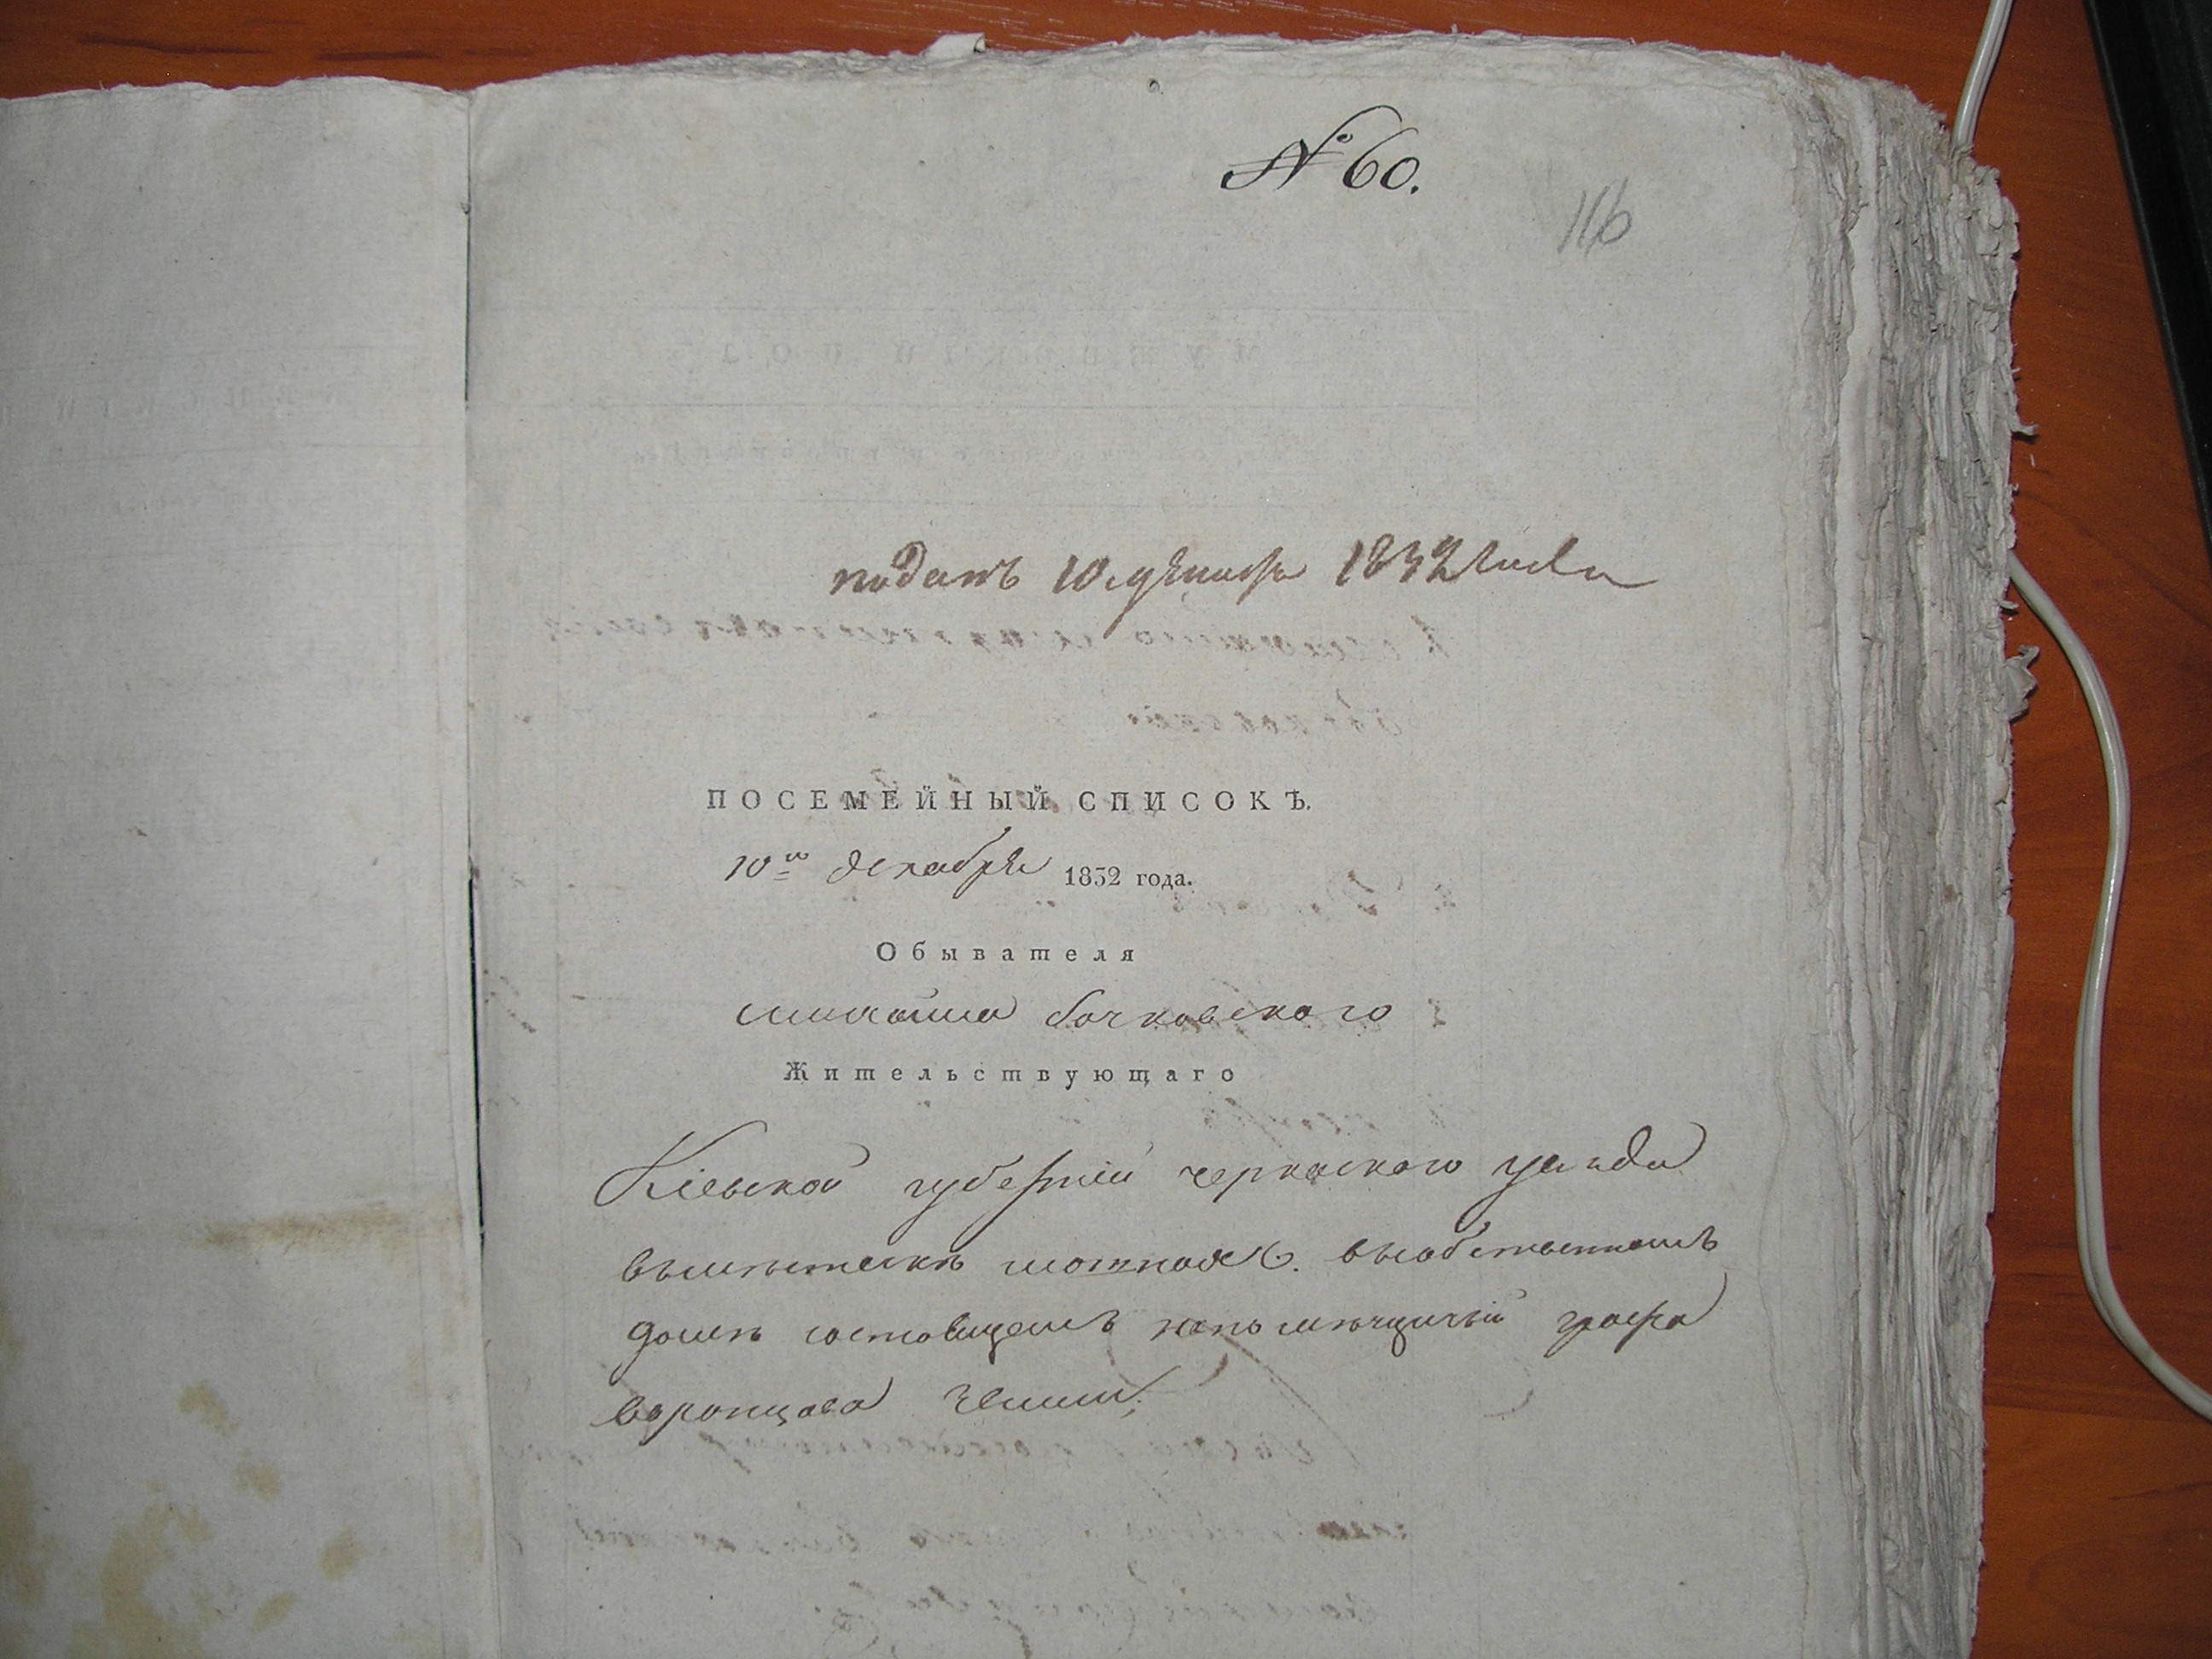 № 60.
116
поданъ 10 декабря 1832 года
ПОСЕМЕЙНЫЙ СПИСОКЪ.
10го декабря 1832 года.
Обывателя
бочковского
Жительствующаго
Кіевской губерніи черкаского уезда
вместечкѣ мошнахъ. всобственномъ
домѣ состоящемъ напомѣщичьй графа
воронцова земли,